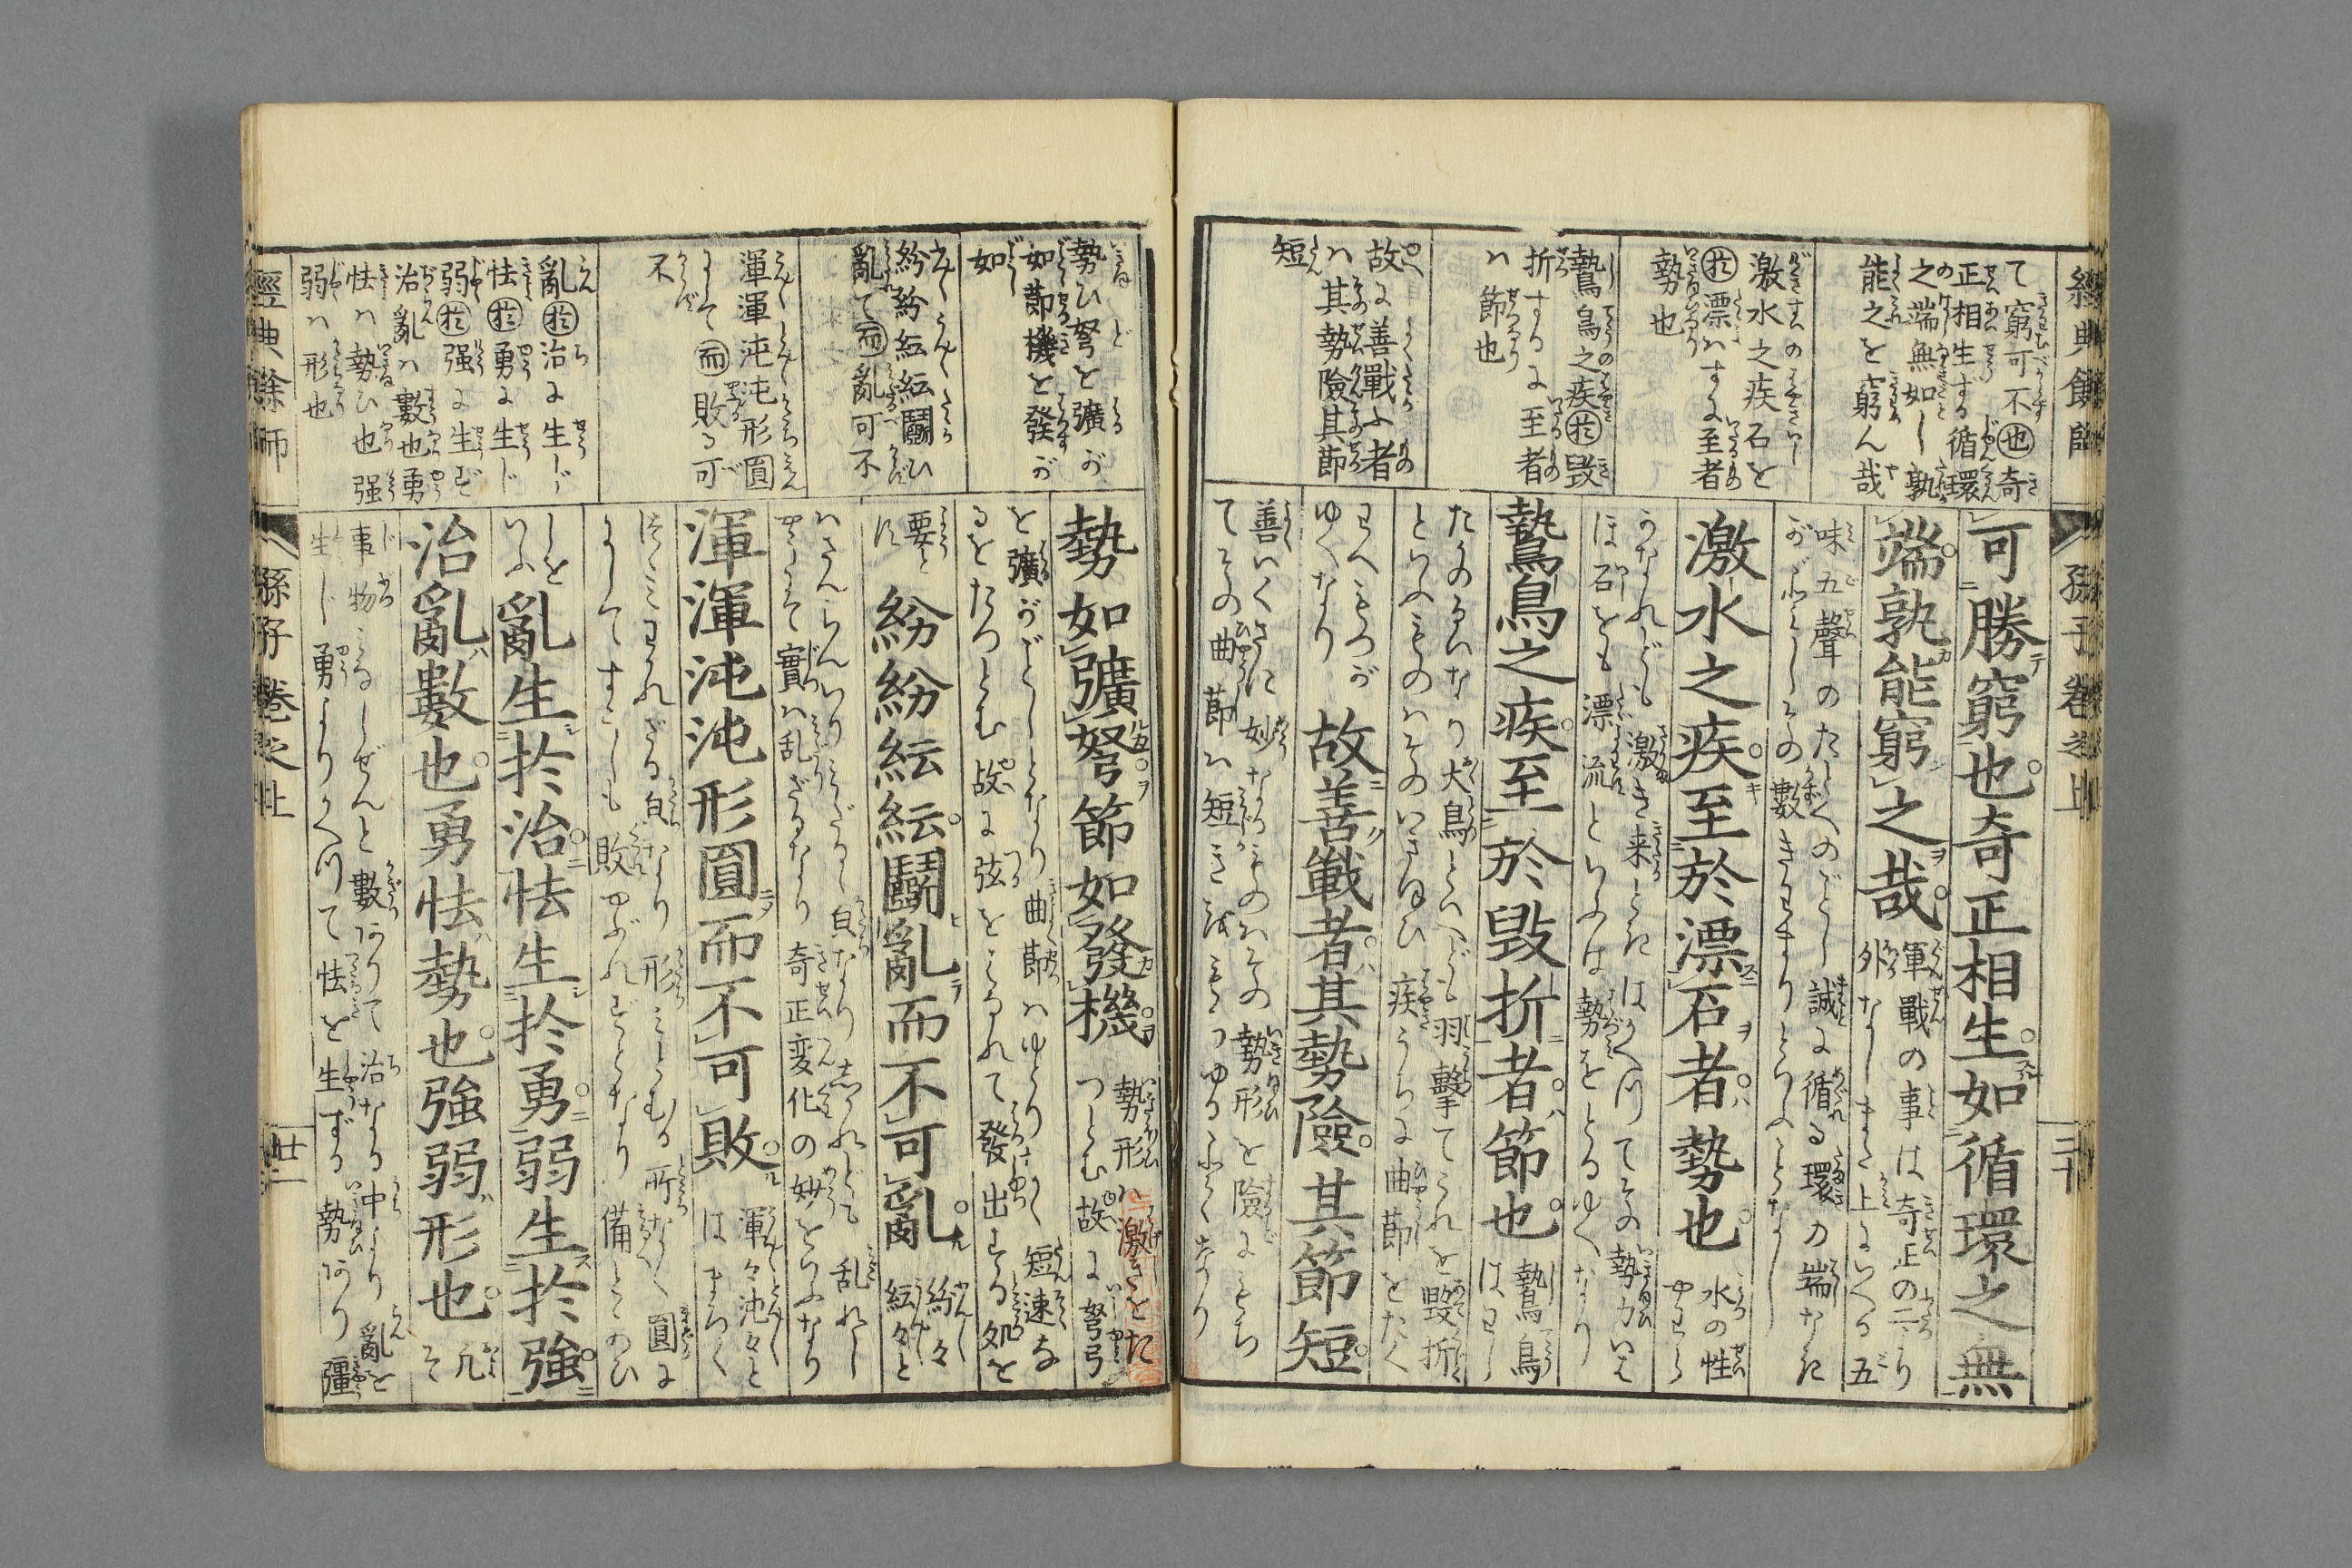 經典餘師
孫子卷之上
二十
て窮可不也奇
正相生ずる循環
之端無如し孰
能之を窮ん哉
激水之疾石を
於漂はすに至者
勢也
鷙鳥之疾於毀
折するに至者
ハ節也
故に善戰ふ者
ハ其勢險其節
短
可勝窮也奇正相生如循環之無
端孰能窮之哉
軍戰の事は奇正の二より
外なしまた上にいへる五
味五聲のたとへのごとし誠に循る環の端なき
がごとしその數きわまりといふことなし
激水之疾至於漂石者勢也
水の性
やわらかなれども激き来ときはかへつてその勢力いは
ほ石をも漂流といふは勢をとるゆへなり
鷙鳥之疾至於毀折者節也
鷙鳥
はわしたかのるいなり大鳥とへども羽擊てこれを毀折
といふものハそのいきほひ疾うちに曲節をたく
わへもつがゆへなり
故善戰者其勢險其節短
善いくさに妙なるものハその勢形を險にもち
てその曲節ハ短きをもつゆるにとくなり
勢ひ弩を彍が
如節機を發が
如
紛紛紜紜鬭ひ
亂て而亂可不
渾渾沌沌形圓
にして而敗る可
不
亂於治に生じ
怯於勇に生じ
弱於强に生ず
治亂ハ數也勇
怯ハ勢ひ也强
弱ハ形也
勢如彍弩節如發機
勢形ハ激きをた
つとむ故に弩弓
を彍がごとしとなり曲節ハゆとりなく短速な
るをたつとむ故に弦をはなれて發出する処を
要とす
紛紛紜紜鬭亂而不可亂
紛々
紜々と
ハさんらんいりみだるゝ皃なりしかれども乱れし
やうにて實ハ乱ざるなり奇正変化の妙をいふなり
渾渾沌沌形圓而不可敗
渾々沌々と
はまろく
つゞみわれざる皃なり形とゞむる所なく圓に
してすこしも敗やぶれずとなり備とゝのひ
しをいふ
亂生於治怯生於勇弱生於強
治亂數也勇怯勢也強弱形也
凡そ
事物みなしぜんと數ありて治なる中より亂を
生じ勇よりかへつて怯を生ずる勢あり彊
經典餘師
孫子卷之上
廿一